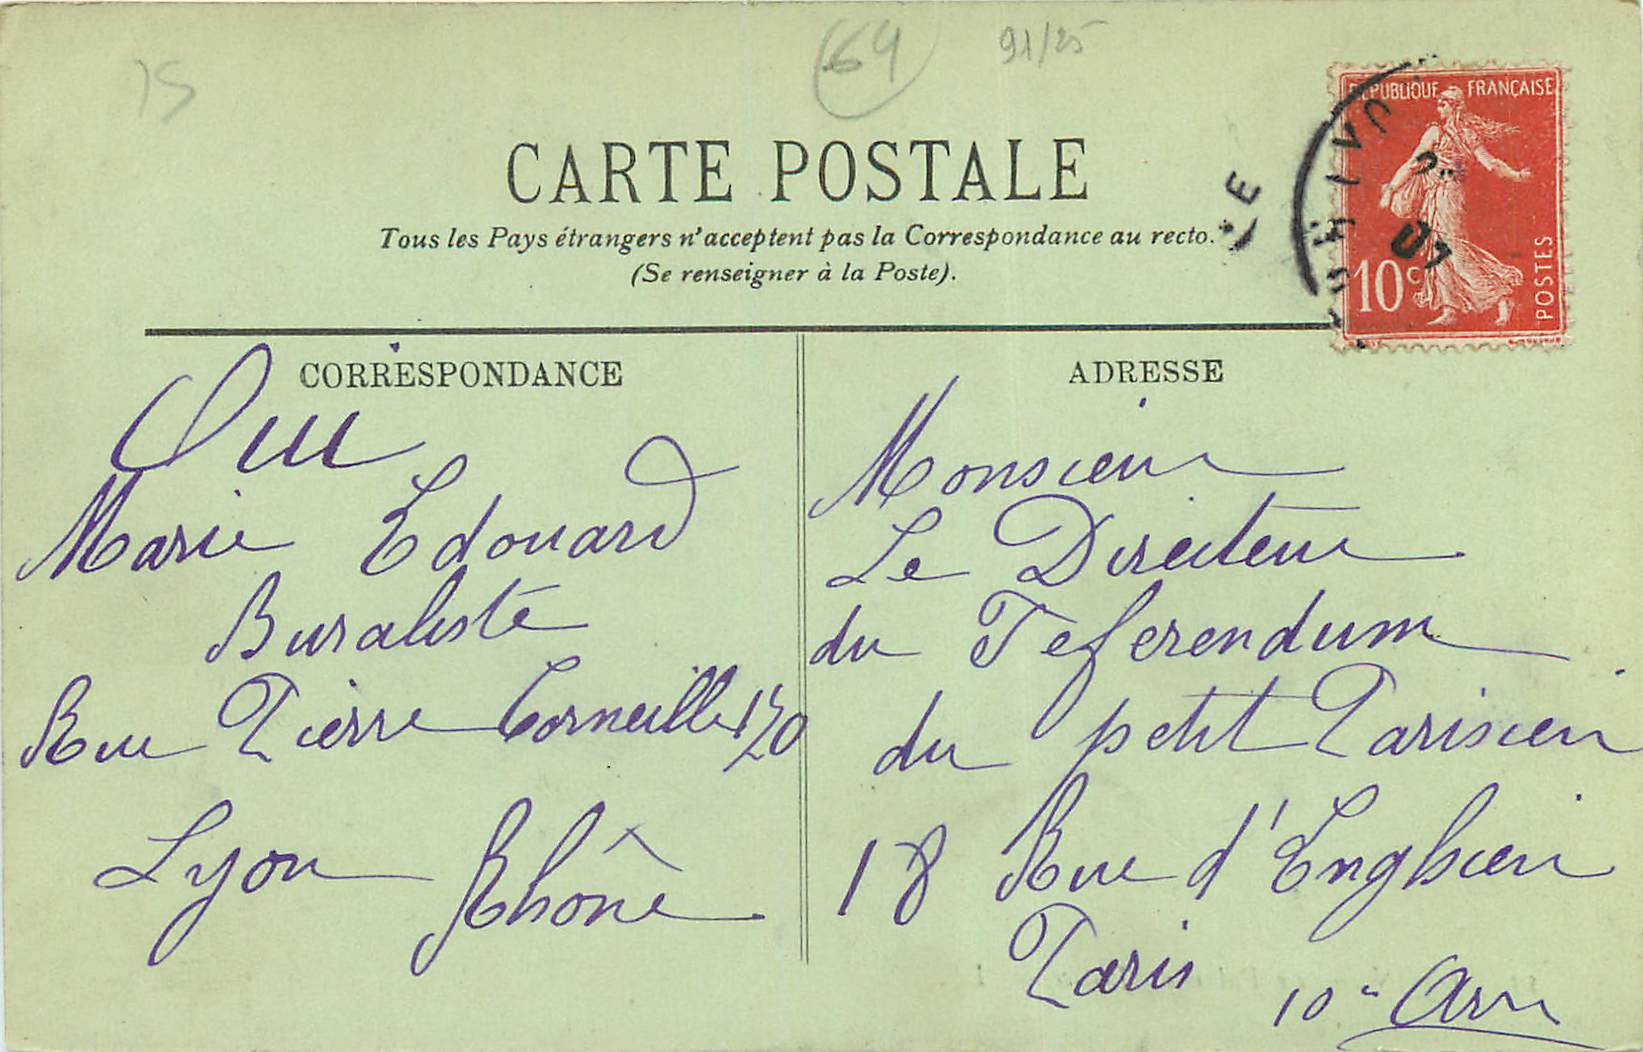 75
64
91/25
CARTE POSTALE
Tous les Pays étrangers n'acceptent pas la Correspondance au recto.
(Se renseigner à la Poste).
RÉPUBLIQUE FRANÇAISE
10 c
POSTES
07
CORRESPONDANCE
Oui
Marie Edouard
Buraliste
Rue Pierre Corneille 170
Lyon Rhône
ADRESSE
Monsieur
Le Directeur
du Referendum
du petit Parisien
18 Rue d'Enghien
Paris
10e Arr